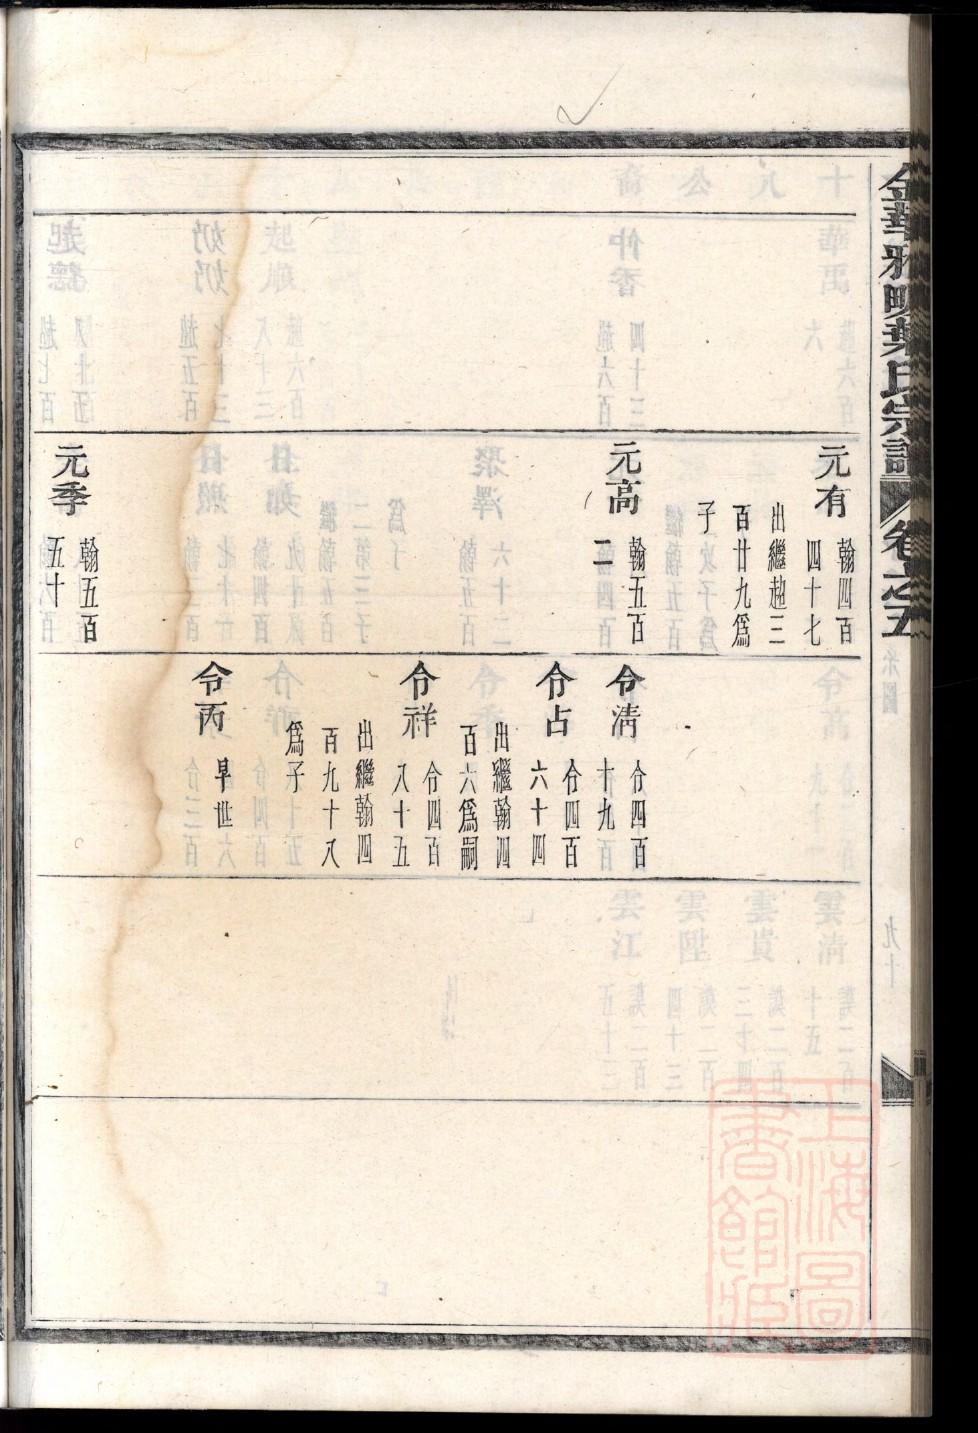 金華雅畈葉氏宗譜 卷之五
元有
翰四百
四十七
出繼趙三
百廿九爲
子
元高
翰五百
二
元季
翰五百
五十
令淸
令四百
十九
令占
令四百
六十四
出繼翰四
百六爲嗣
令祥
令四百
八十五
出繼翰四
百九十八
爲子
令丙
早世
上海圖
書館藏